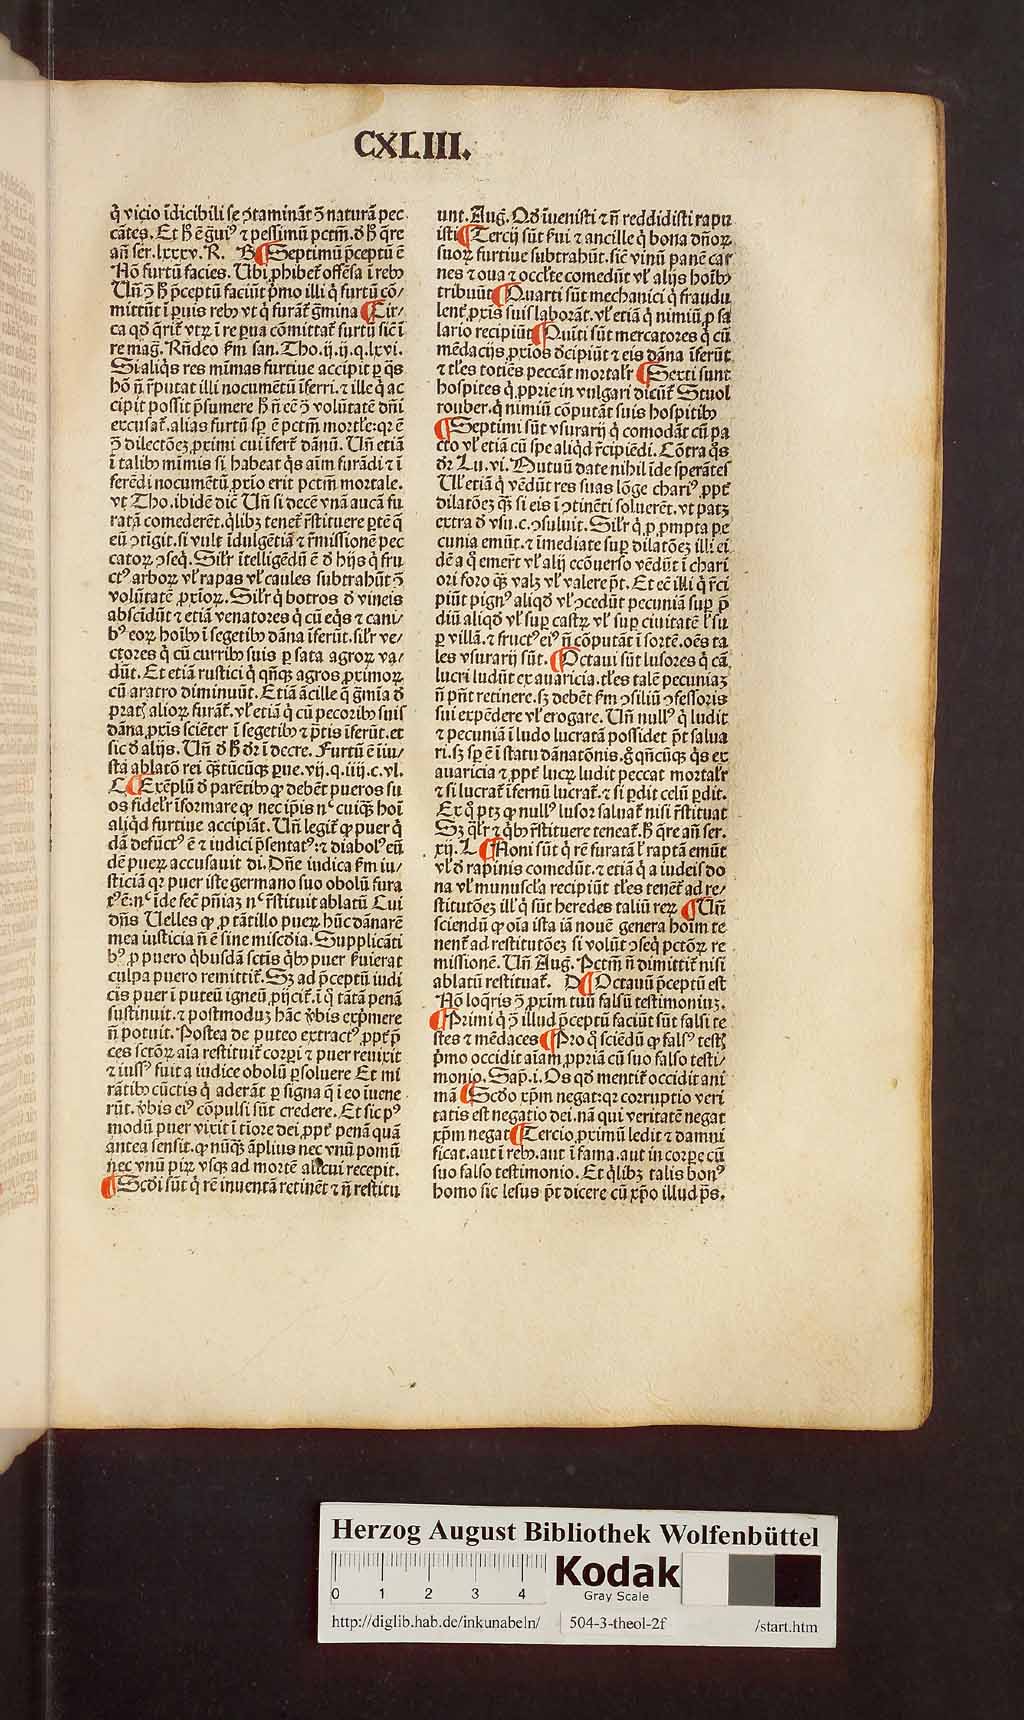 CXLIII.
q̇ vicio īdicibili se ꝯtamināt ꝯ̄ naturā pec
cātes. Et ħ ē g̃ui⁹ ⁊ pessimū pctm̄. d̓ ħ q̄re
an̄ ser. lxxxv. R. B ¶ Septimū p̄ceptū ē
Nō furtū facies. Ubi ꝓhibet̄ offēsa ī rebꝫ
Un̄ ꝯ̄ ħ p̄ceptū faciūt p̓mo illi q̇ furtū cō⸗
mittūt ī ꝑuis rebꝫ vt q̇ furāt̄ g̃mina ¶ Cir⸗
ca qd̓ q̄rit̄ vtꝝ ī re ꝑua cōmittat̄ furtū sic̄ ī
re mag. Rn̄deo ẜm san. Tho. ij. ij. q. lxvi.
Si aliq̇s res mīmas furtiue accipit ꝑ q̄s
hō n̄ r̄putat illi nocumētū īferri. ⁊ ille q̇ ac
cipit possit p̄sumere ħ n̄ eē ꝯ̄ volūtatē dn̄i
excusat̄. alias furtū sꝑ ē pctm̄ mortle: qꝛ ē
ꝯ̄ dilectōeꝫ ꝓximi cui ifert̄ dānū. Un̄ etiā
ī talibꝫ mīmis si habeat q̇s aīm furādi ⁊ ī
ferēdi nocumētū ꝓxīo erit pctm̄ mortale.
vt Tho. ibidē dic̄ Un̄ si decē vnā aucā fu
ratā comederēt. q̇libꝫ tenet̄ r̄stituere ꝑtē q̄
eū ꝯtigit. si vult īdulgētiā ⁊ r̄missionē pec
catoꝝ ꝯseq̇. Sil̓r ītelligēdū ē d̓ hijs q̇ fru
ct⁹ arboꝝ vl̓ rapas vl̓ caules subtrahūt ꝯ̄
volūtatē ꝓxioꝝ. Sil̓r q̇ botros d̓ vineis
abscīdūt ⁊ etiā venatores q̇ cū eq̇s ⁊ cani⸗
b⁹ eoꝝ hoībꝫ ī segetibꝫ dāna īferūt. sil̓r ve⸗
ctores q̇ cū curribꝫ suis ꝑ sata agroꝝ va⸗
dūt. Et etiā rustici q̇ qn̄qꝫ agros ꝓximoꝝ
cū aratro diminuūt. Etiā ācille q̇ g̃mīa d̓
pratꝭ alioꝝ furāt̄. vl̓ etiā q̇ cū pecoribꝫ suis
dāna ꝓxīs sciēter ī segetibꝫ ⁊ p̄tis īferūt. et
sic d̓ alijs. Un̄ d̓ ħ d̓r ī decre. Furtū ē iiu⸗
sta ablatō rei q̄stūcūqꝫ ꝑue. vij. q. iiij. c. vl.
C ¶ Exēplū d̓ parētibꝫ ꝙ debēt pueros su
os fidel̓r īsformare ꝙ nec ip̄is nᶜ cuiqꝫ hoī
aliqd̓ furtiue accipiāt. Un̄ legit̄ ꝙ puer q̇
dā defūct⁹ ē ⁊ iudici p̄sentat⁹: ⁊ diabol⁹ eū
dē pueꝝ accusauit di. Dn̄e iudica ẜm iu⸗
sticiā qꝛ puer iste germano suo obolū fura
t⁹ ē: nᶜ īde fec̄ pn̄iaꝫ nᶜ r̄stituit ablatū Cui
dn̄s Uelles ꝙ ꝓ tātillo pueꝝ hūc dānarē
mea iusticia n̄ ē sine misc̄dia. Supplicāti
b⁹ ꝓ puero q̇busdā sctis q̇bꝫ puer ẜuierat
culpa puero remittit̄. Sꝫ ad p̄ceptū iudi
cis puer ī puteū igneū ꝓijcit̄. ī q̇ tātā penā
sustinuit. ⁊ postmoduꝫ hāc v̓bis exp̓mere
n̄ potuit. Postea de puteo extract⁹ ꝓpt̓ p̄
ces sctōꝝ aīa restituit̄ corꝑi ⁊ puer reuixit
⁊ iuss⁹ fuit a iudice obolū ꝑsoluere Et mi
rātibꝫ cūctis q̇ aderāt ꝑ signa q̄ ī eo iuene
rūt. v̓bis ei⁹ cōpulsi sūt credere. Et sic p⁹
modū puer vixit ī tiōre dei ꝓpt̓ penā quā
antea sensit. ꝙ nūq̄ꝫ āplius nec vnū pomū
nec vnū piꝝ vsqꝫ ad mortē alicui recepit.
¶ Scd̓i sūt q̇ rē inuentā retinēt ⁊ n̄ restitu
unt. Aug̃. Qd̓ īuenisti ⁊ n̄ reddidisti rapu
isti ¶ Tercij sūt ẜui ⁊ ancille q̇ bona dn̄oꝝ
suoꝝ furtiue subtrahūt. sic̄ vinū panē car
nes ⁊ oua ⁊ occl̓te comedūt vl̓ alijs hoībꝫ
tribuūt ¶ Quarti sūt mechanici q̇ fraudu
lent̓ ꝓxis suis laborāt. vl̓ etiā q̇ nimiū ꝓ sa
lario recipiūt ¶ Quīti sūt mercatores q̇ cū
mēdacijs ꝓxios d̓cipiūt ⁊ eis dāna īferūt
⁊ tl̓es totiēs peccāt mortal̓r ¶ Sexti sunt
hospites q̇ ꝓprie in vulgari dicūt̄ Stuol
rouber. q̇ nimiū cōputāt suis hospitibꝫ
¶ Septimi sūt vsurarij q̇ comodāt cū pa
cto vl̓ etiā cū spe aliq̇d r̄cipiēdi. Cōtra q̄s
d̓r Lu. vi. Mutuū date nihil īde sperātes
Ul̓ etiā q̇ vēdūt res suas lōge chari⁹ ꝓpt̓
dilatōeꝫ q̄ꝫ si eis ī ꝯtinēti soluerēt. vt patꝫ
extra d̓ vsu. c. ꝯsuluit. Sil̓r q̇ ꝓ ꝓmpta pe
cunia emūt. ⁊ īmediate suꝑ dilatōeꝫ illi ei
dē a q̇ emerīt vl̓ alij ecōuerso vēdūt ī chari
ori foro q̄ꝫ valꝫ vl̓ valere p̄t. Et eē illi q̇ r̄ci
piūt pign⁹ aliqd̓ vl̓ ꝯcedūt pecuniā suꝑ p̄
diū aliqd̓ vl̓ suꝑ castꝝ vl̓ suꝑ ciuitatē l̓ su
ꝑ villā. ⁊ fruct⁹ ei⁹ n̄ cōputāt ī sortē. oēs ta
les vsurarij sūt. ¶ Octaui sūt lusores q̇ cā
lucri ludūt ex auaricia. tl̓es talē pecuniaꝫ
n̄ pn̄t retinere. sꝫ debēt ẜm ꝯsiliū ꝯfessoris
sui expēdere vl̓ erogare. Un̄ null⁹ q̇ ludit
⁊ pecuniā ī ludo lucratā possidet p̄t salua
ri. sꝫ sꝑ ē ī statu dānatōnis. g̊ qn̄cūqꝫ q̇s ex
auaricia ⁊ ꝓpt̓ lucꝝ ludit peccat mortal̓r
⁊ si lucrat̄ īfernū lucrat̄. ⁊ si ꝑdit celū ꝑdit.
Ex q̊ ptꝫ ꝙ null⁹ lusor saluat̄ nisi r̄stituat
Sꝫ q̄l̓r ⁊ q̇bꝫ r̄stituere teneat̄. ħ q̄re an̄ ser.
xij. L ¶ Noni sūt q̇ rē furatā l̓ raptā emūt
vl̓ d̓ rapinis comedūt. ⁊ etiā q̇ a iudeis do
na vl̓ munuscl̓a recipiūt tl̓es tenēt̄ ad re⸗
stitutōeꝫ ill̓ q̇ sūt heredes taliū reꝝ ¶ Un̄
sciendū ꝙ oīa ista iā nouē genera hoīm te
nent̄ ad restitutōeꝫ si volūt ꝯseq̇ pctōꝝ re
missionē. Un̄ Aug̃. Pctm̄ n̄ dimittit̄ nisi
ablatū restituat̄. D ¶ Octauū p̄ceptū est
Nō loq̇ris ꝯ̄ ꝓxim̄ tuū falsū testimoniuꝫ.
¶ Primi q̇ ꝯ̄ illud p̄ceptū faciūt sūt falsi te
stes ⁊ mēdaces ¶ Pro q̊ sciēdū ꝙ fals⁹ testꝭ
p̓mo occidit aīam ꝓpriā cū suo falso testi⸗
monio. Sap̄. i. Os qd̓ mentit̄ occidit ani
mā ¶ Scd̓o xp̄m negat: qꝛ corruptio veri
tatis est negatio dei. nā qui veritatē negat
xp̄m negat ¶ Tercio ꝓximū ledit ⁊ damni
ficat. aut ī rebꝫ. aut ī fama. aut in corꝑe cū
suo falso testimonio. Et q̇libꝫ talis bon⁹
homo sic lesus p̄t dicere cū xp̄o illud ps̄.
Herzog August Bibliothek Wolfenbüttel
0 1 2 3 4
Kodak
Gray Scale
http://diglib.hab.de/inkunabeln/ 504-3-theol-2f /start.htm